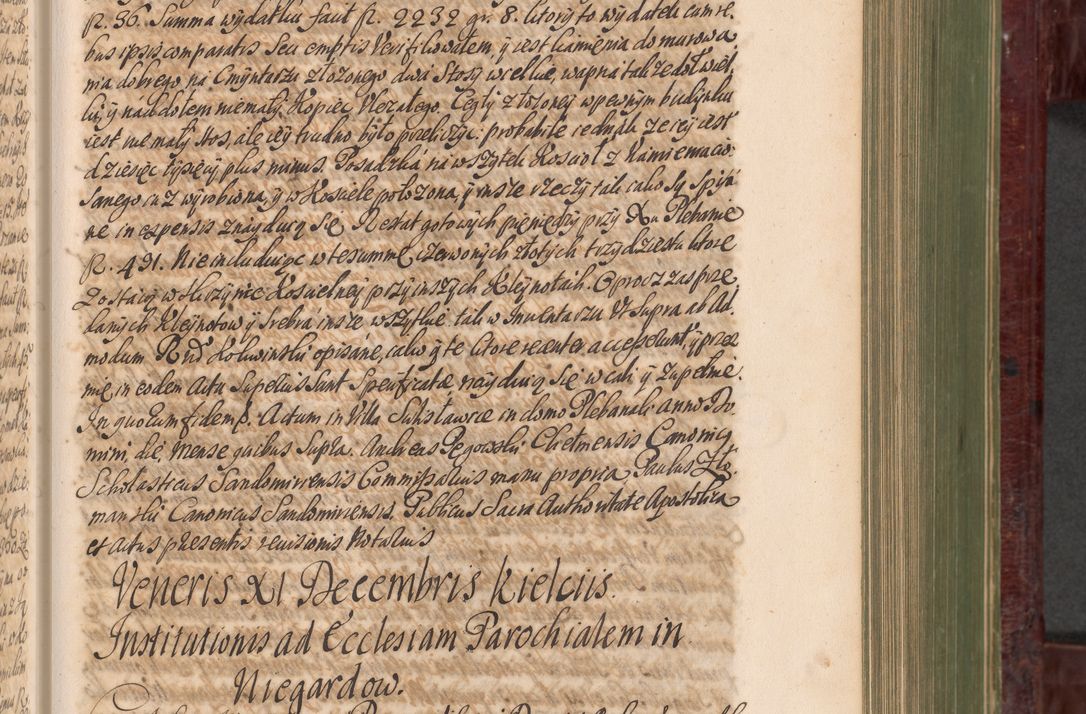 fl. 36. Summa wydatku facit fl. 2232 gr. 8. ktory to wydatek cum re-
bus ipsis comparatis seu emptis Veryfikowałem y iest kamienia do murowa
nia dobrego na Cmyntarzu złożonego dwa stosy wielkie, wapna także dół wiel
ki, y nad dołem niemały Kopiec Cegły złożoney w pewnym budynku
iest niemały stos, ale iey trudno było przeliczyć probabile iednak że iey iest
dziesięc tysięcy plus minus. Posadzka na wszytek Kosciół z Kamienia cio-
sanego iuż wyrobiona, y w Kosciele położona, y insze rzeczy tak iako są
ne in expensis znayduią się Restat gotowych pieniędzy przy Xu Plebanie
fl. 491. Nie includuiąc w te summę czerwonych złotych trzydziestu ktore
zostaią w skrzynce Koscielney przy inszych Kleynotach. Oprocz zas prze
danych Kleynotow y srebra insze wszytkie tak w Inwentarzu Ut supra ab Ad-
modum Rnd opisane, iako y te ktore recenter accesserunt, y przez
mię in eodem Actu superius sunt specificatæ nayduią się w cale y zupełnie.
In quorum fidem p. Actum in Villa in domo Plebanali Anno Do
mini, die, Mense quibus supra. Andreas Pęgowski Chełmensis Canonicus
Scholasticus Sandomiriensis Commissarius manu propria, Paulus
Canonicus Sandomiriensis, Publicus Sacra Authoritate Apostolica
et Actus præsentis revisionis Notarius
Veneris XI Decembris Kielciis.
Institutionis ad Ecclesiam Parochialem in
Niegardow.